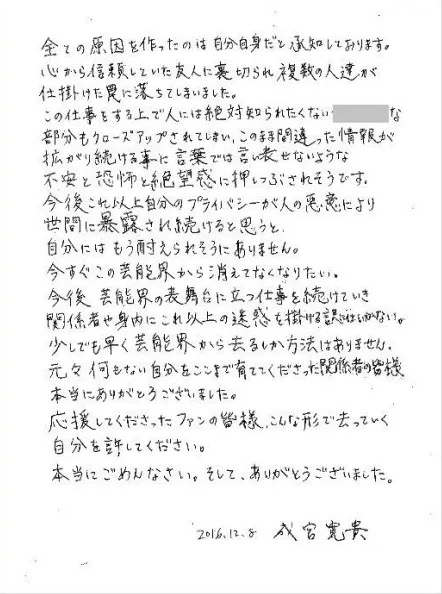 全ての原因を作ったのは自分自身だと承知しております。
心から信頼していた友人に裏切られ複数の人達が
仕掛けた罠に落ちてしまいました。
この仕事をする上で人には絶対知られたくない な
部分もクローズアップされてしまい、このまま間違った情報が
拡がり続ける事に言葉では言い表せないような
不安と恐怖と絶望感に押しつぶされそうです。
今後これ以上自分のプライバシーが人の悪意により
世間に暴露され続けると思うと、
自分にはもう耐えられそうにありません。
今すぐこの芸能界から消えてなくなりたい。
今後芸能界の表舞台に立つ仕事を続けていき
関係者や身内にこれ以上の迷惑を掛ける訳にはいかない。
少しでも早く芸能界から去るしか方法はありません。
元々何もない自分をここまで育ててくださった関係者の皆様
本当にありがとうございました。
応援してくださったファンの皆様、こんな形で去っていく
自分を許してください。
本当にごめんなさい。そして、ありがとうございました。
2016.12.8 成宮寛貴